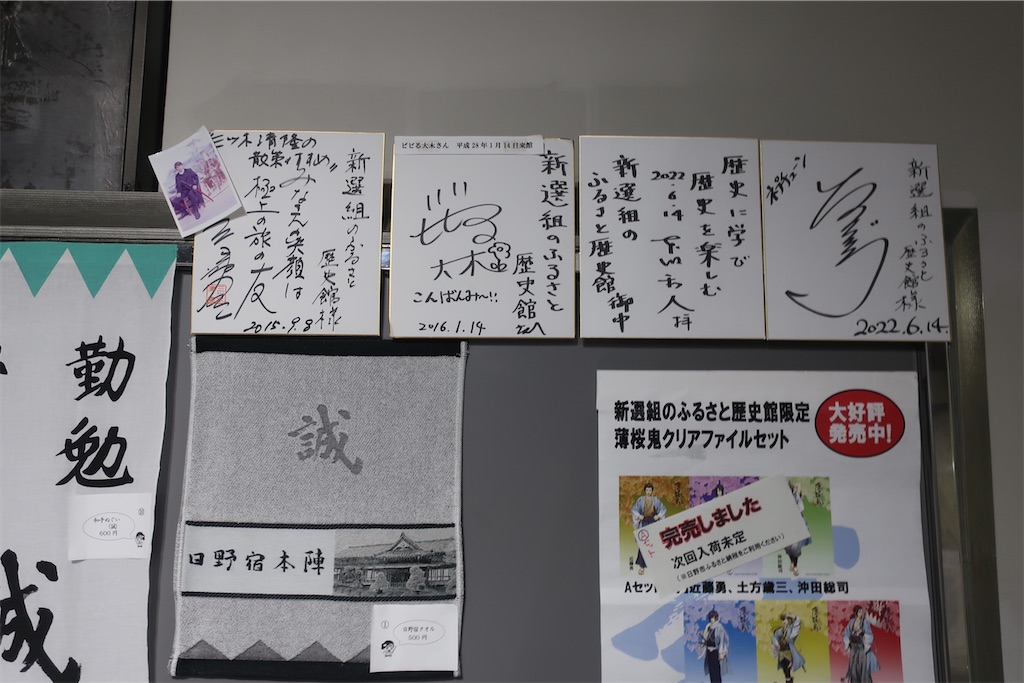 新選組のふるさと
歴史館様
三ツ木清隆の
散策
みなさんの笑顔は
極上の旅の友
2015.9.8
ビビる大木さん　平成28年1月14日来館
新選組のふるさと
歴史館さんへ
ビビる
大木
こんばんみ〜!!
2016.1.14
歴史に学び
歴史を楽しむ
2022.6.14
拝
新選組の
ふるさと歴史館御中
新選組のふるさと
歴史館様
2022.6.14
勤勉
誠
(誠)
600円
誠
日野宿本陣
①
日野宿タオル
500円
新選組のふるさと歴史館限定
薄桜鬼クリアファイルセット
大好評
発売中!
完売しました
次回入荷未定
(※日野市ふるさと納税をご利用ください)
Aセット
近藤勇、土方歳三、沖田総司